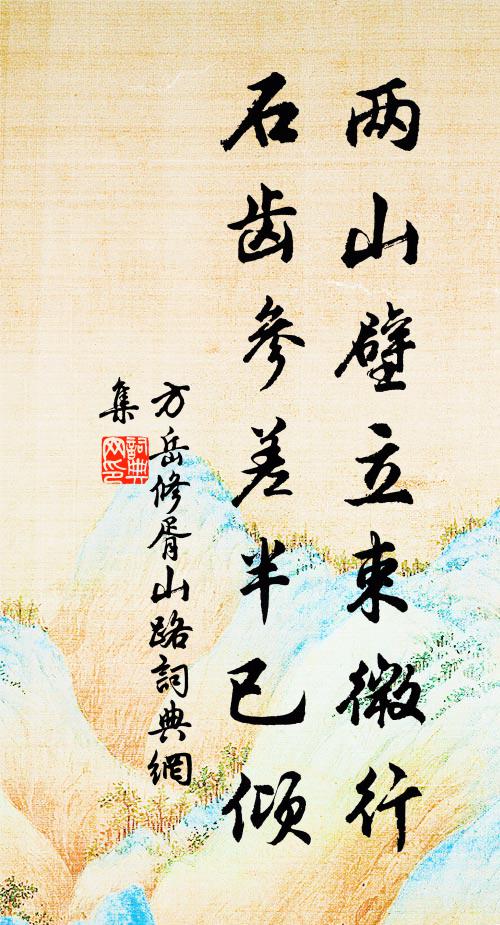 两山壁立束微行
石齿参差半已倾
方岳修胥山路詞典網
集
詞典
网印